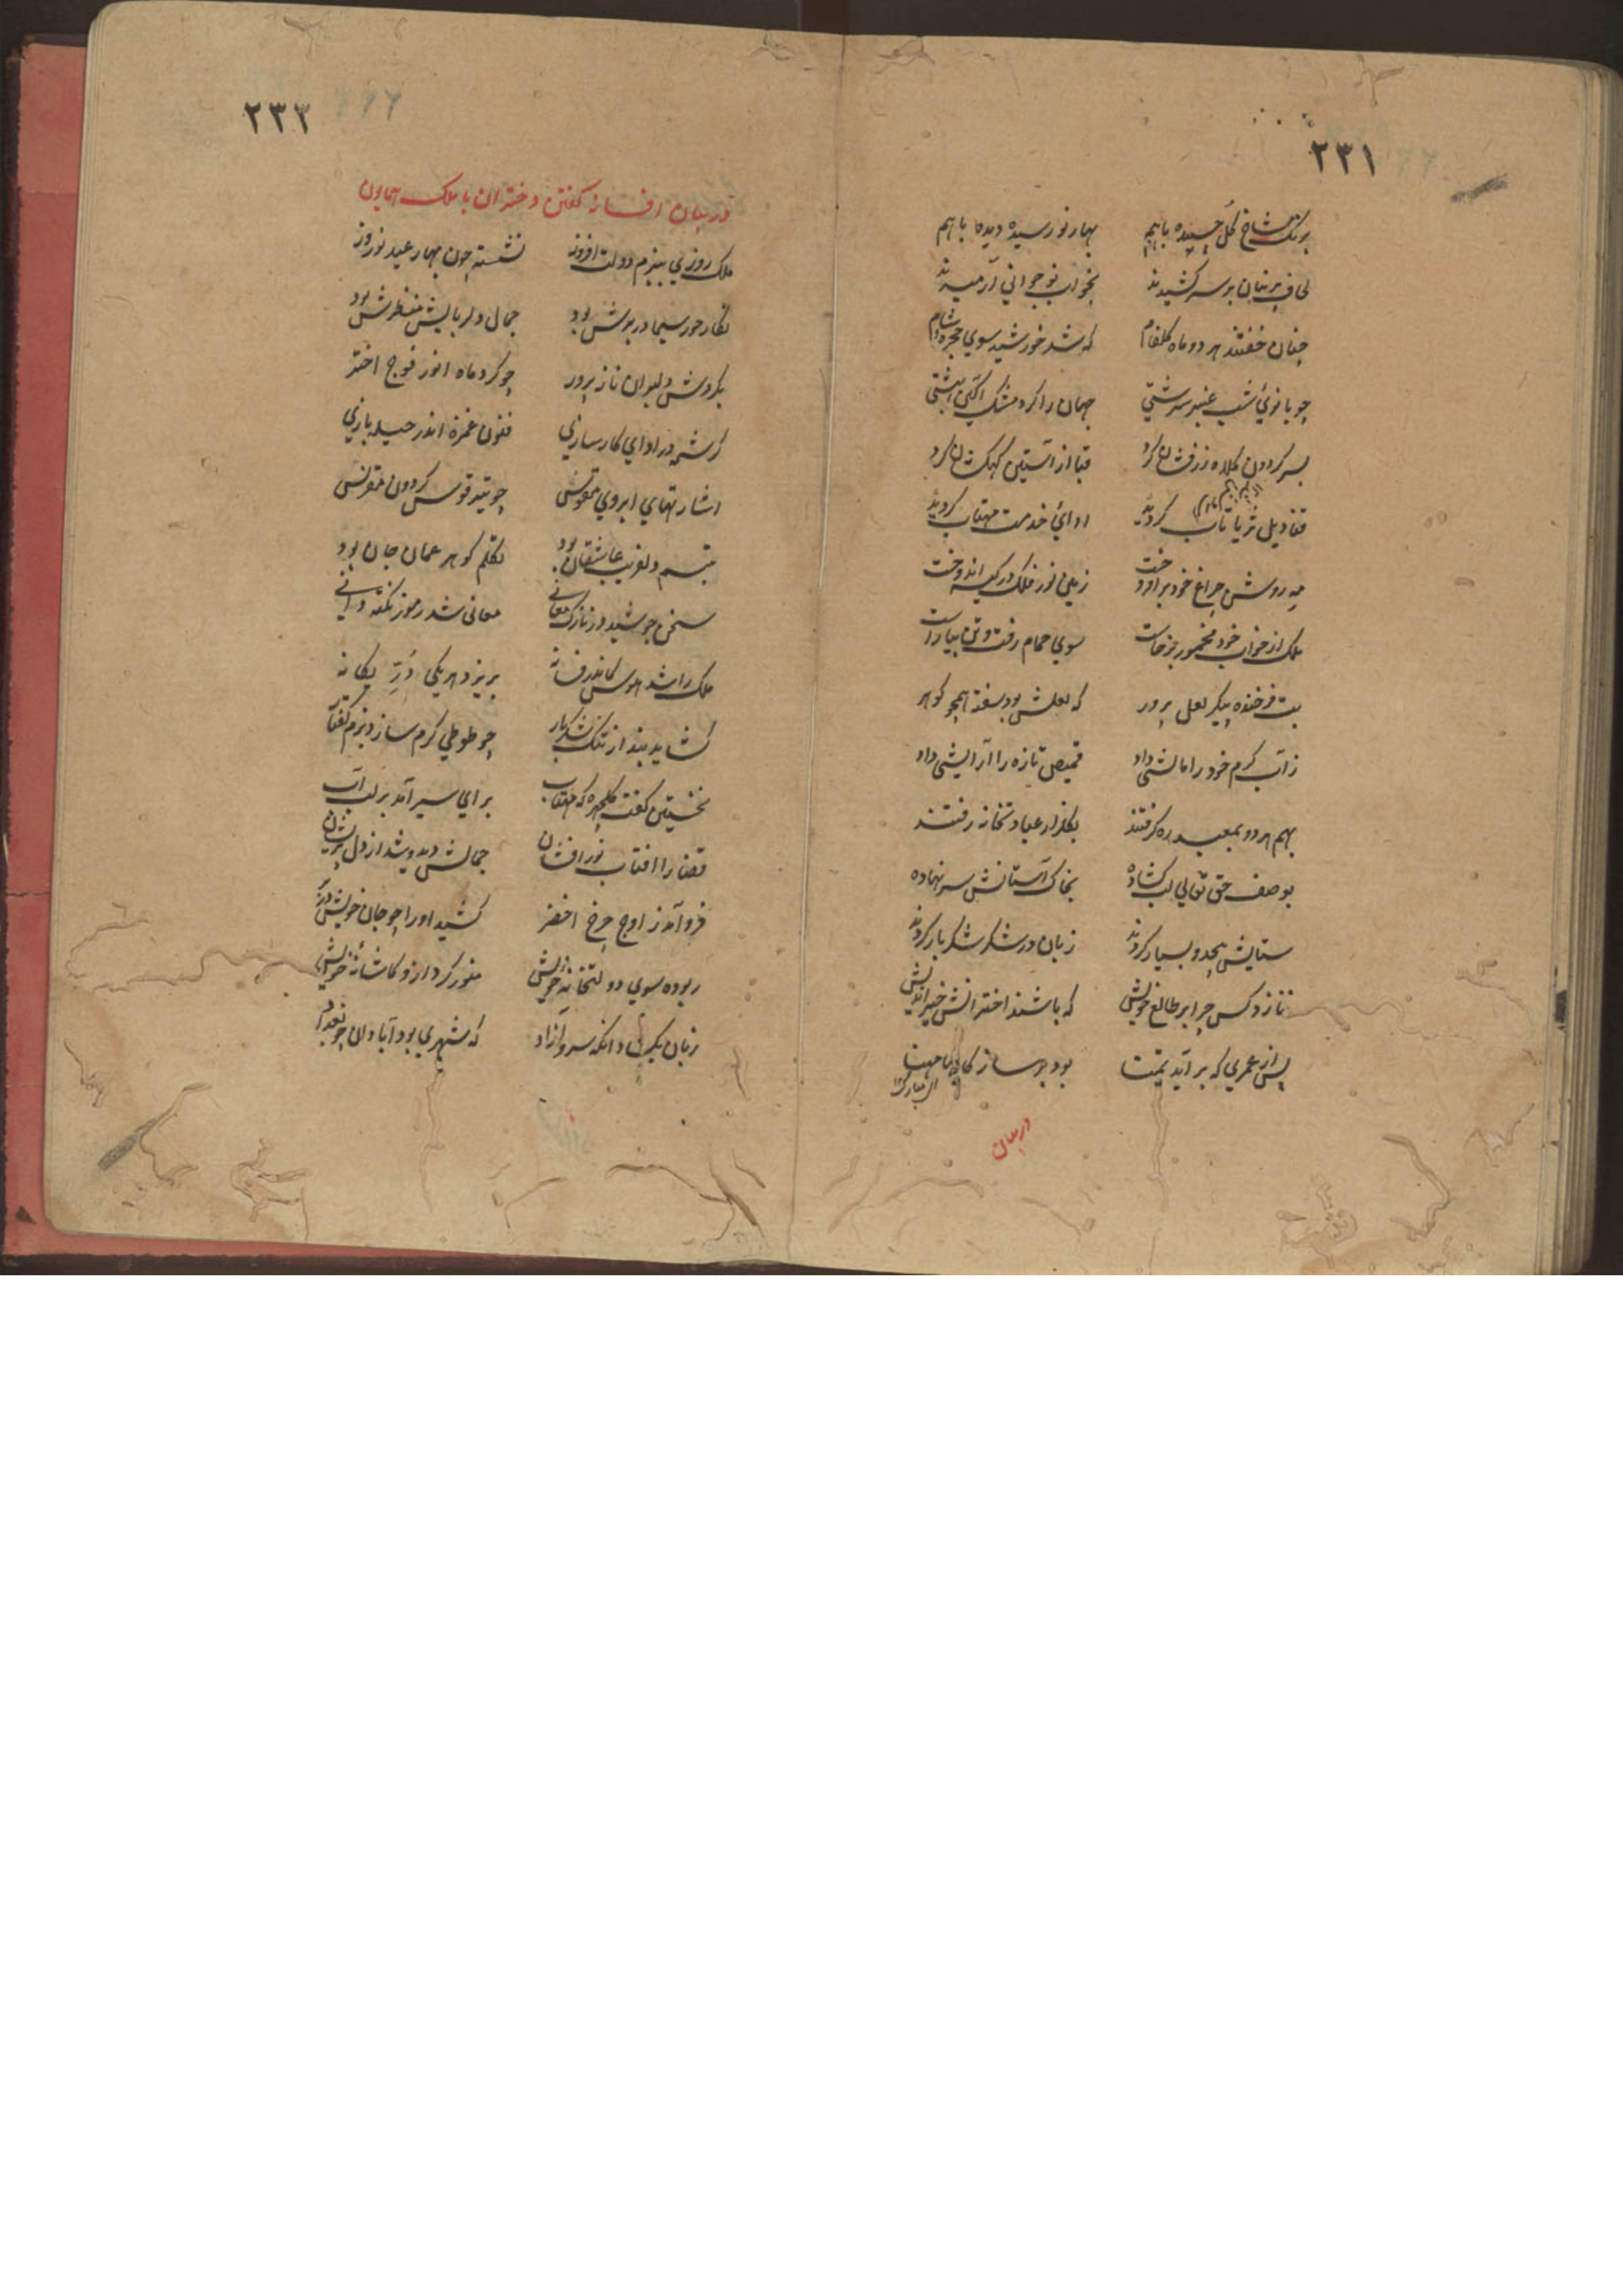 ۲۳۱
برنگ شاخ گل چسپیده باهم بهار نورسیده دیده باهم
لحاف پرنیان بر سر کشیدند بخواب نوجوانی آرمیدند
چنان خفتند هر دو ماه گلفام که شد خورشید سوی حجره شام
چو بانوئ شب عنبر سرشتی جهان را کرد مشک آگین بهشتی
بسر گردون کلاه زرفشان کرد قبا از آستین کهکشان کرد
قنادیل ثریا تاب کردند ادائ خدمت مهتاب کردند
مه روشن چراغ خود بر افروخت ز نیلی نور فلک در کیسه اندوخت
ملک از خواب خود مخمور برخاست سوی حمام رفت و تن بیاراست
بت فرخنده پیکر لعل پرور که لعلش بود سفته همچو گوهر
ز آب گرم خود را مالشی داد قمیص تازه را آرایشی داد
بهم هر دو بمعبد ره گرفتند بگلزار عبادتخانه رفتند
بوصف حق تعالی لب کشاده بخاک آستانش سر نهاده
ستایش بیحد و بسیار کردند زبان در شکر شکر بار کردند
ننازد کس چرا بر طالع خویش که باشند اخترانش خیر اندیش
پس از عمری که بر آید تمنا بود بر ساز
دربیان
۲۳۲
در بیان افسانه گفتن دختران با ملک همایون
ملک روزی ببزم دولت افروز نشسته چون بهار عید نوروز
نگار حور سیما در برش بود جمال دلربایش منظرش بود
بگردش دلبران ناز پرور چو گرد ماه انور فوج اختر
کرشمه در ادای کارسازی فنون غمزه اندر حیله بازی
اشارتهای ابروی مقوس چو تیر قوس گردون مقرنس
تبسم دلفریب عاشقان بود تکلم گوهر عمان جان بود
سخن جوشید در نازک معانی معانی شد رموز نکته دانی
ملک را شد هوس کاندر فسانه بریزد هر یکی دُرِّ یگانه
کشاید بند از تنگ شکر بار چو طوطی گرم سازد بزم گفتار
نخستین گفت گلچهره که مهتاب برای سیر آمد بر لب آب
قضا را افتاب نور افشان جمالش دید و شد از دل پریشان
فرو آمد ز اوج چرخ اخضر کشید او را چو جان خویش در بر
ربوده سوی دولتخانهٔ خویش منور کرد از و کاشانهٔ خویش
زبان بکشاد انگه سرو ازاد که شهری بود آبادان چو بغداد